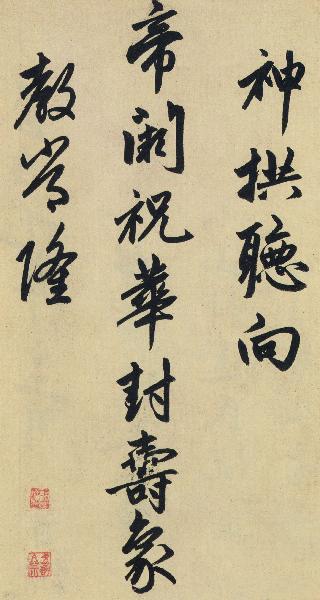 神拱聽向
帝閽祝華封壽象
教常隆